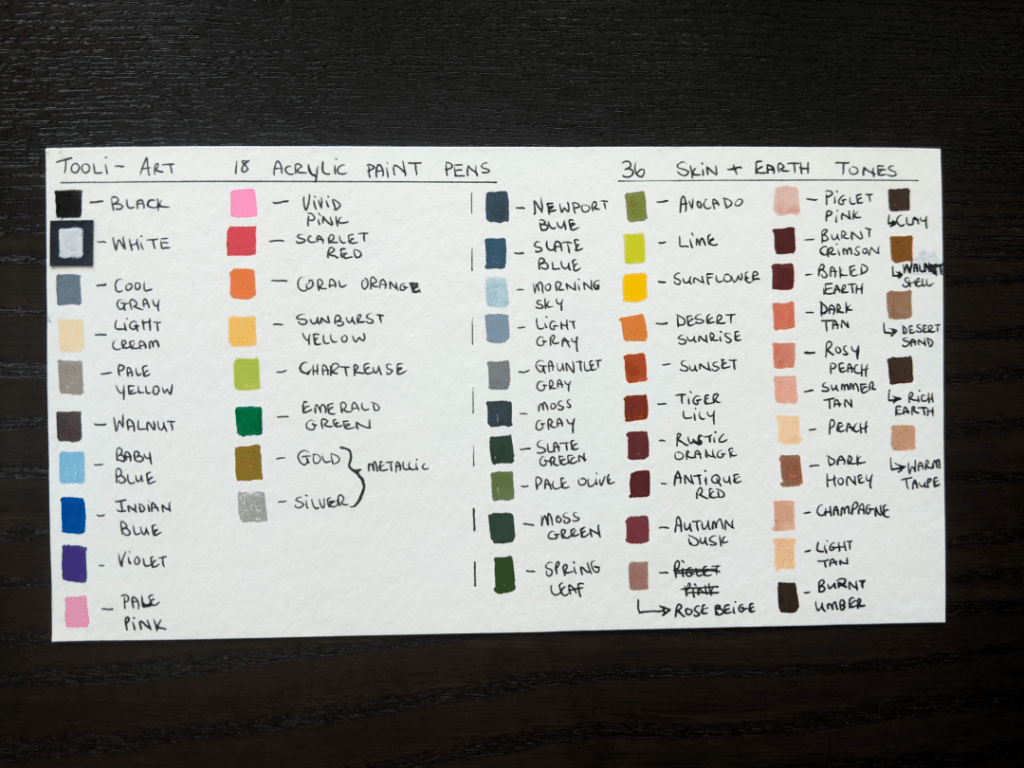 TOOLI-ART 18 ACRYLIC PAINT PENS
BLACK
WHITE
COOL
GRAY
LIGHT
CREAM
PALE
YELLOW
WALNUT
BABY
BLUE
INDIAN
BLUE
VIOLET
PALE
PINK
VIVID
PINK
SCARLET
RED
CORAL ORANGE
SUNBURST
YELLOW
CHARTREUSE
EMERALD
GREEN
GOLD
SILVER
METALLIC
36 SKIN + EARTH TONES
NEWPORT
BLUE
SLATE
BLUE
MORNING
SKY
LIGHT
GRAY
GAUNTLET
GRAY
MOSS
GRAY
SLATE
GREEN
PALE OLIVE
MOSS
GREEN
SPRING
LEAF
AVOCADO
LIME
SUNFLOWER
DESERT
SUNRISE
SUNSET
TIGER
LILY
RUSTIC
ORANGE
ANTIQUE
RED
AUTUMN
DUSK
PIGLET
PINK
ROSE BEIGE
PIGLET
PINK
BURNT
CRIMSON
BAKED
EARTH
DARK
TAN
ROSY
PEACH
SUMMER
TAN
PEACH
DARK
HONEY
CHAMPAGNE
LIGHT
TAN
BURNT
UMBER
CLAY
WALNUT
SHELL
DESERT
SAND
RICH
EARTH
WARM
TAUPE